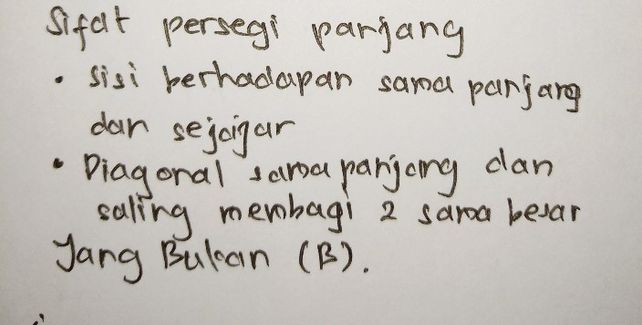 Sifat persegi panjang
• Sisi berhadapan sama panjang
dan sejajar
• Diagonal sama panjang dan
saling membagi 2 sama besar
Yang Bukan (B).